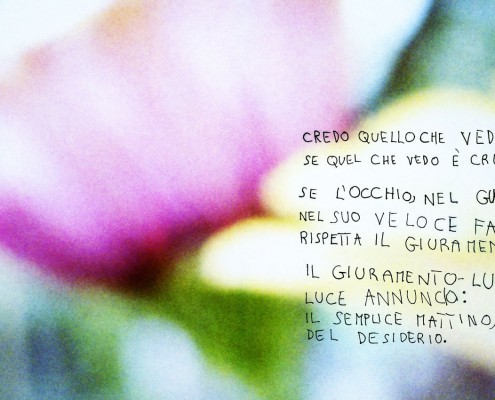 CREDO QUELLO CHE VED
SE QUEL CHE VEDO È CR
SE L'OCCHIO, NEL GU
NEL SUO VELOCE FA
RISPETTA IL GIURAMEN
IL GIURAMENTO-LU
LUCE ANNUNCO:
IL SEMPLICE MATTINO,
DEL DESIDERIO.